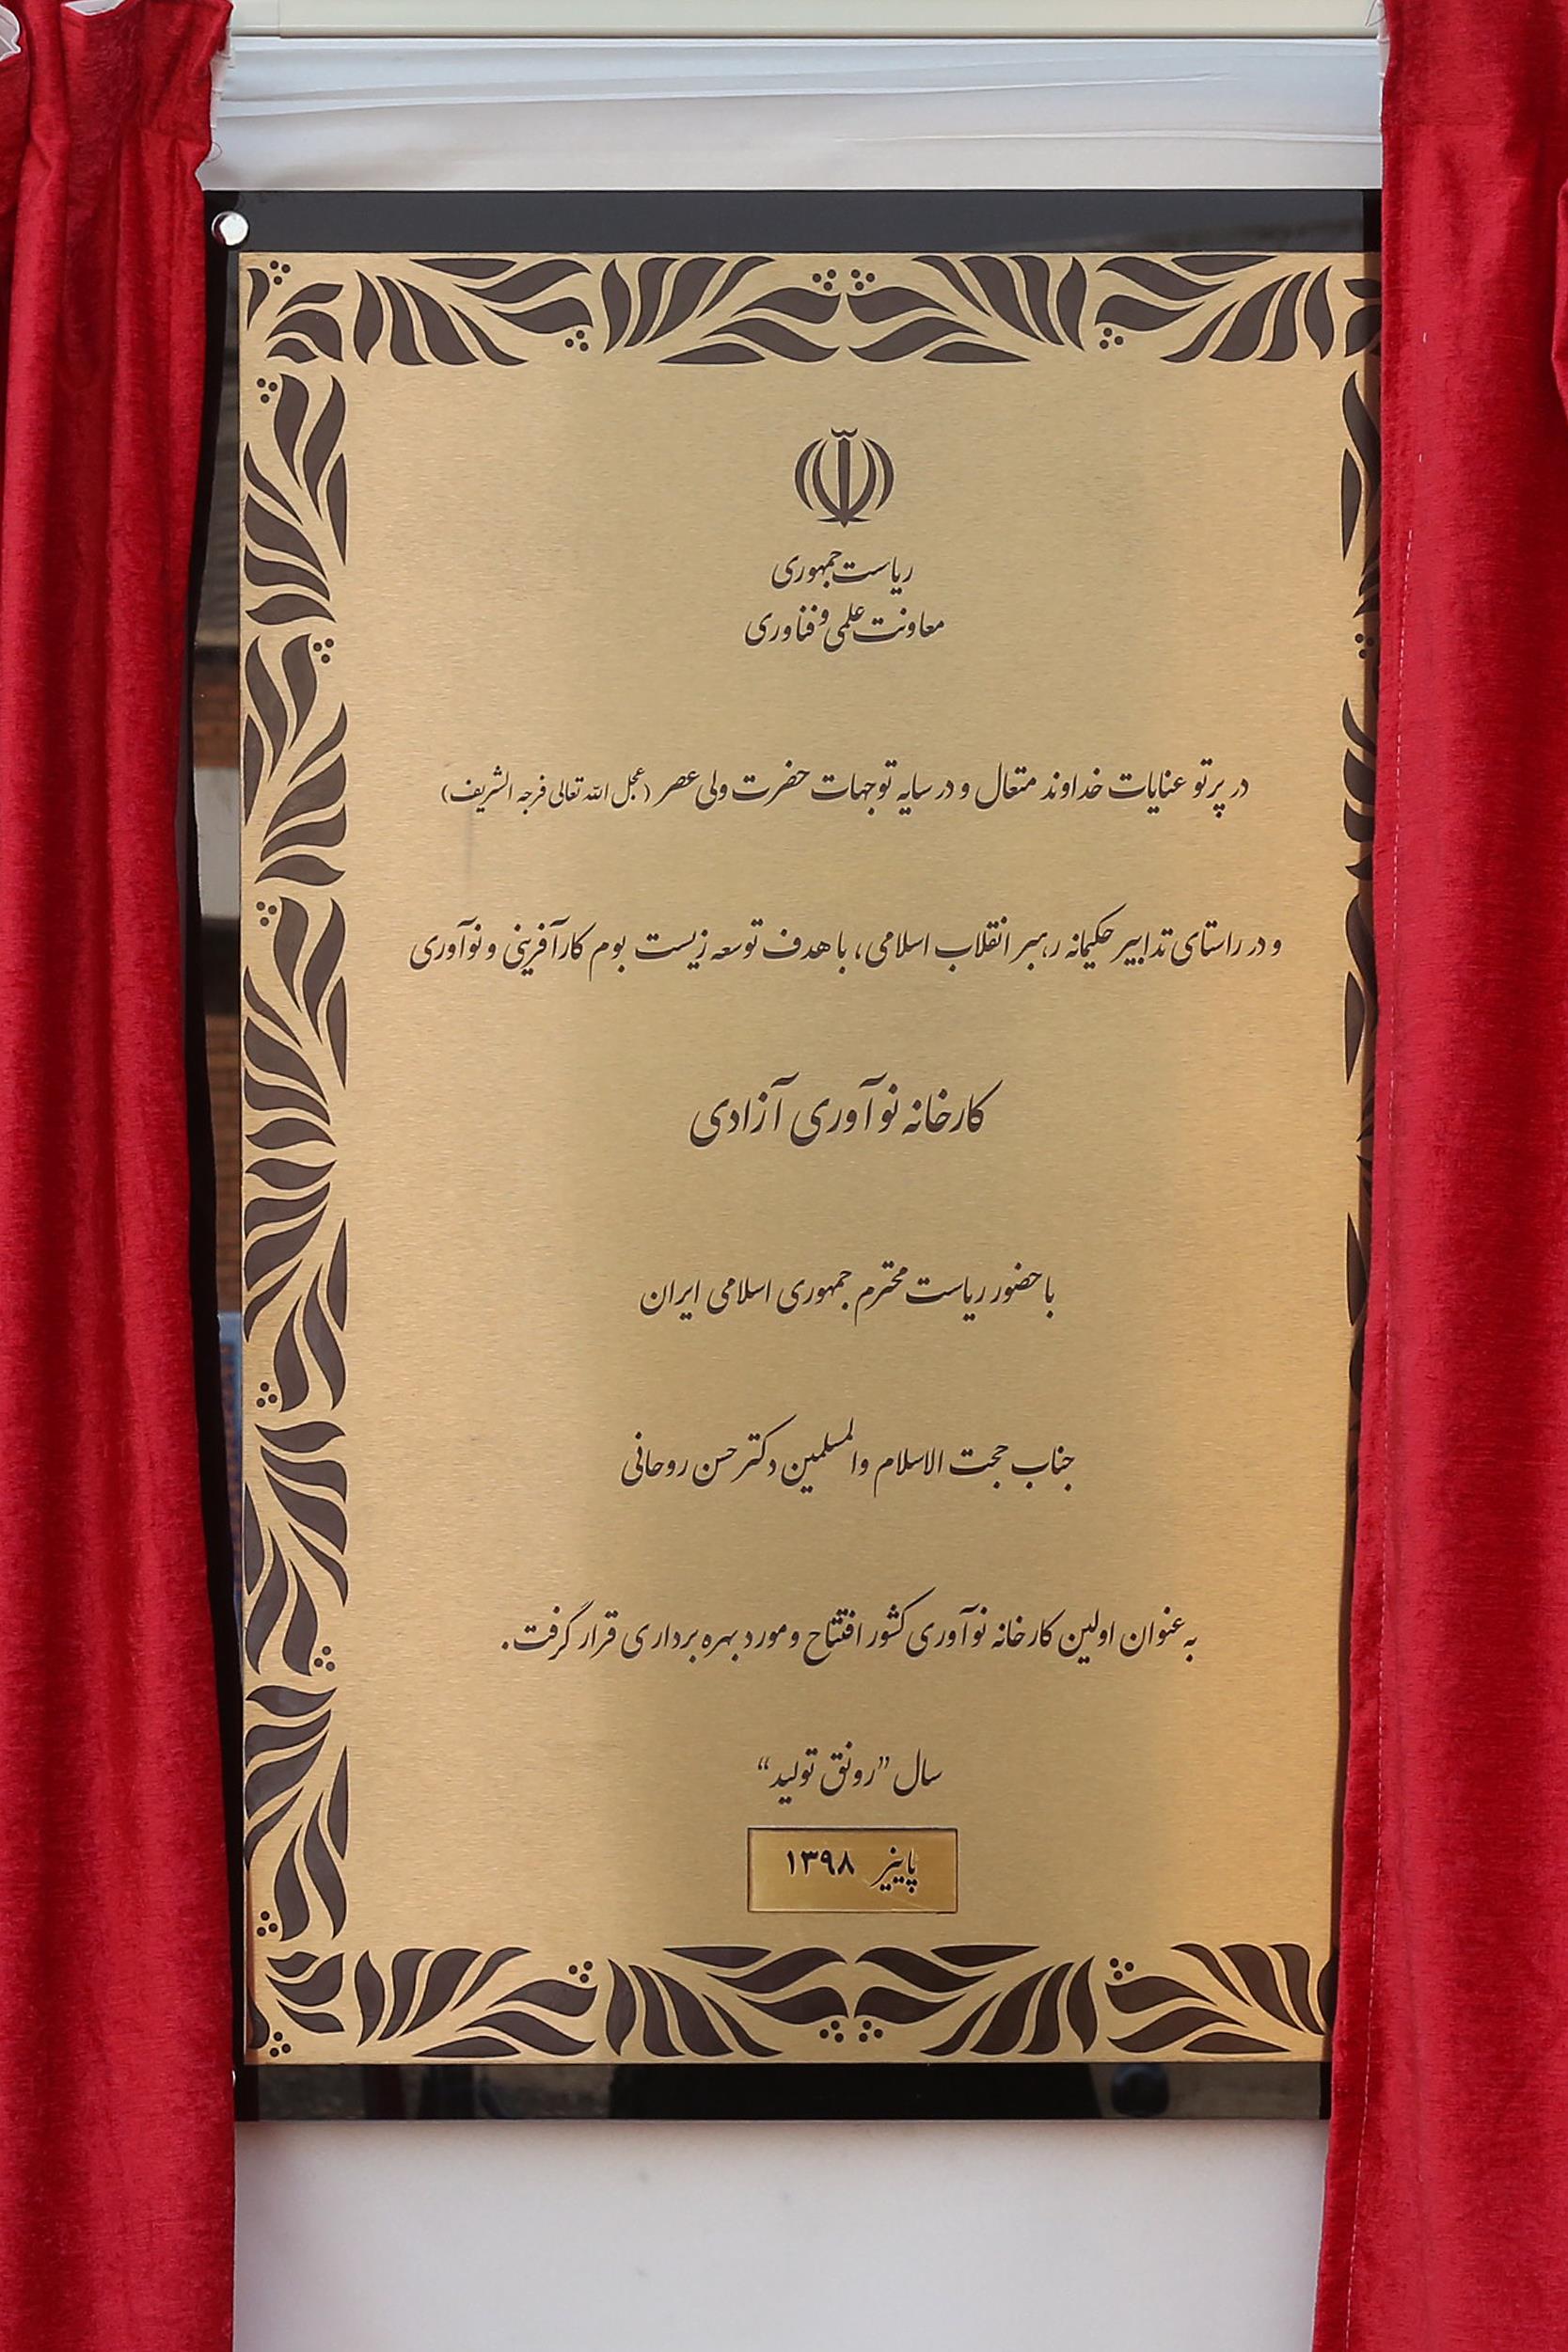 ریاست جمهوری
معاونت علمی و فناوری
در پرتو عنایات خداوند متعال و در سایه توجهات حضرت ولی عصر (عجل الله تعالی فرجه الشریف)
و در راستای تدابیر حکیمانه رهبر انقلاب اسلامی، با هدف توسعه زیست بوم کارآفرینی و نوآوری
کارخانه نوآوری آزادی
با حضور ریاست محترم جمهوری اسلامی ایران
جناب حجت الاسلام والمسلمین دکتر حسن روحانی
به عنوان اولین کارخانه نوآوری کشور افتتاح و مورد بهره برداری قرار گرفت.
سال "رونق تولید"
پاییز ۱۳۹۸